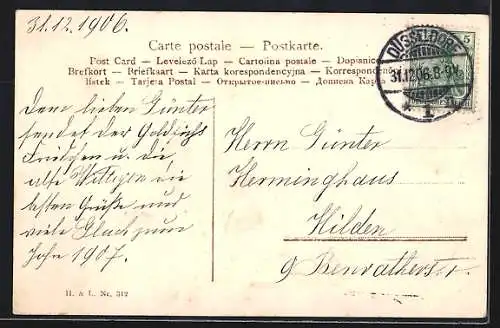 31.12.1906.
Carte postale — Postkarte.
Post Card — Levelező Lap — Cartolina postale — Dopisnice
Brefkort — Briefkaart — Karta korespondencyjna — Korrespondenč
Listek — Tarjeta Postal — Открытое письмо — Дописна Карта
5
DÜSSELDORF
31.12.06. 8-9N.
* 1
Dem lieben Günter
sendet der Goldfuchs
Fritzchen u. die
alte die
besten Grüße und
viele Glück zum
Jahr 1907.
Herrn Günter
Herminghaus
Hilden
9 Benratherstr.
H. & L. Nr. 312